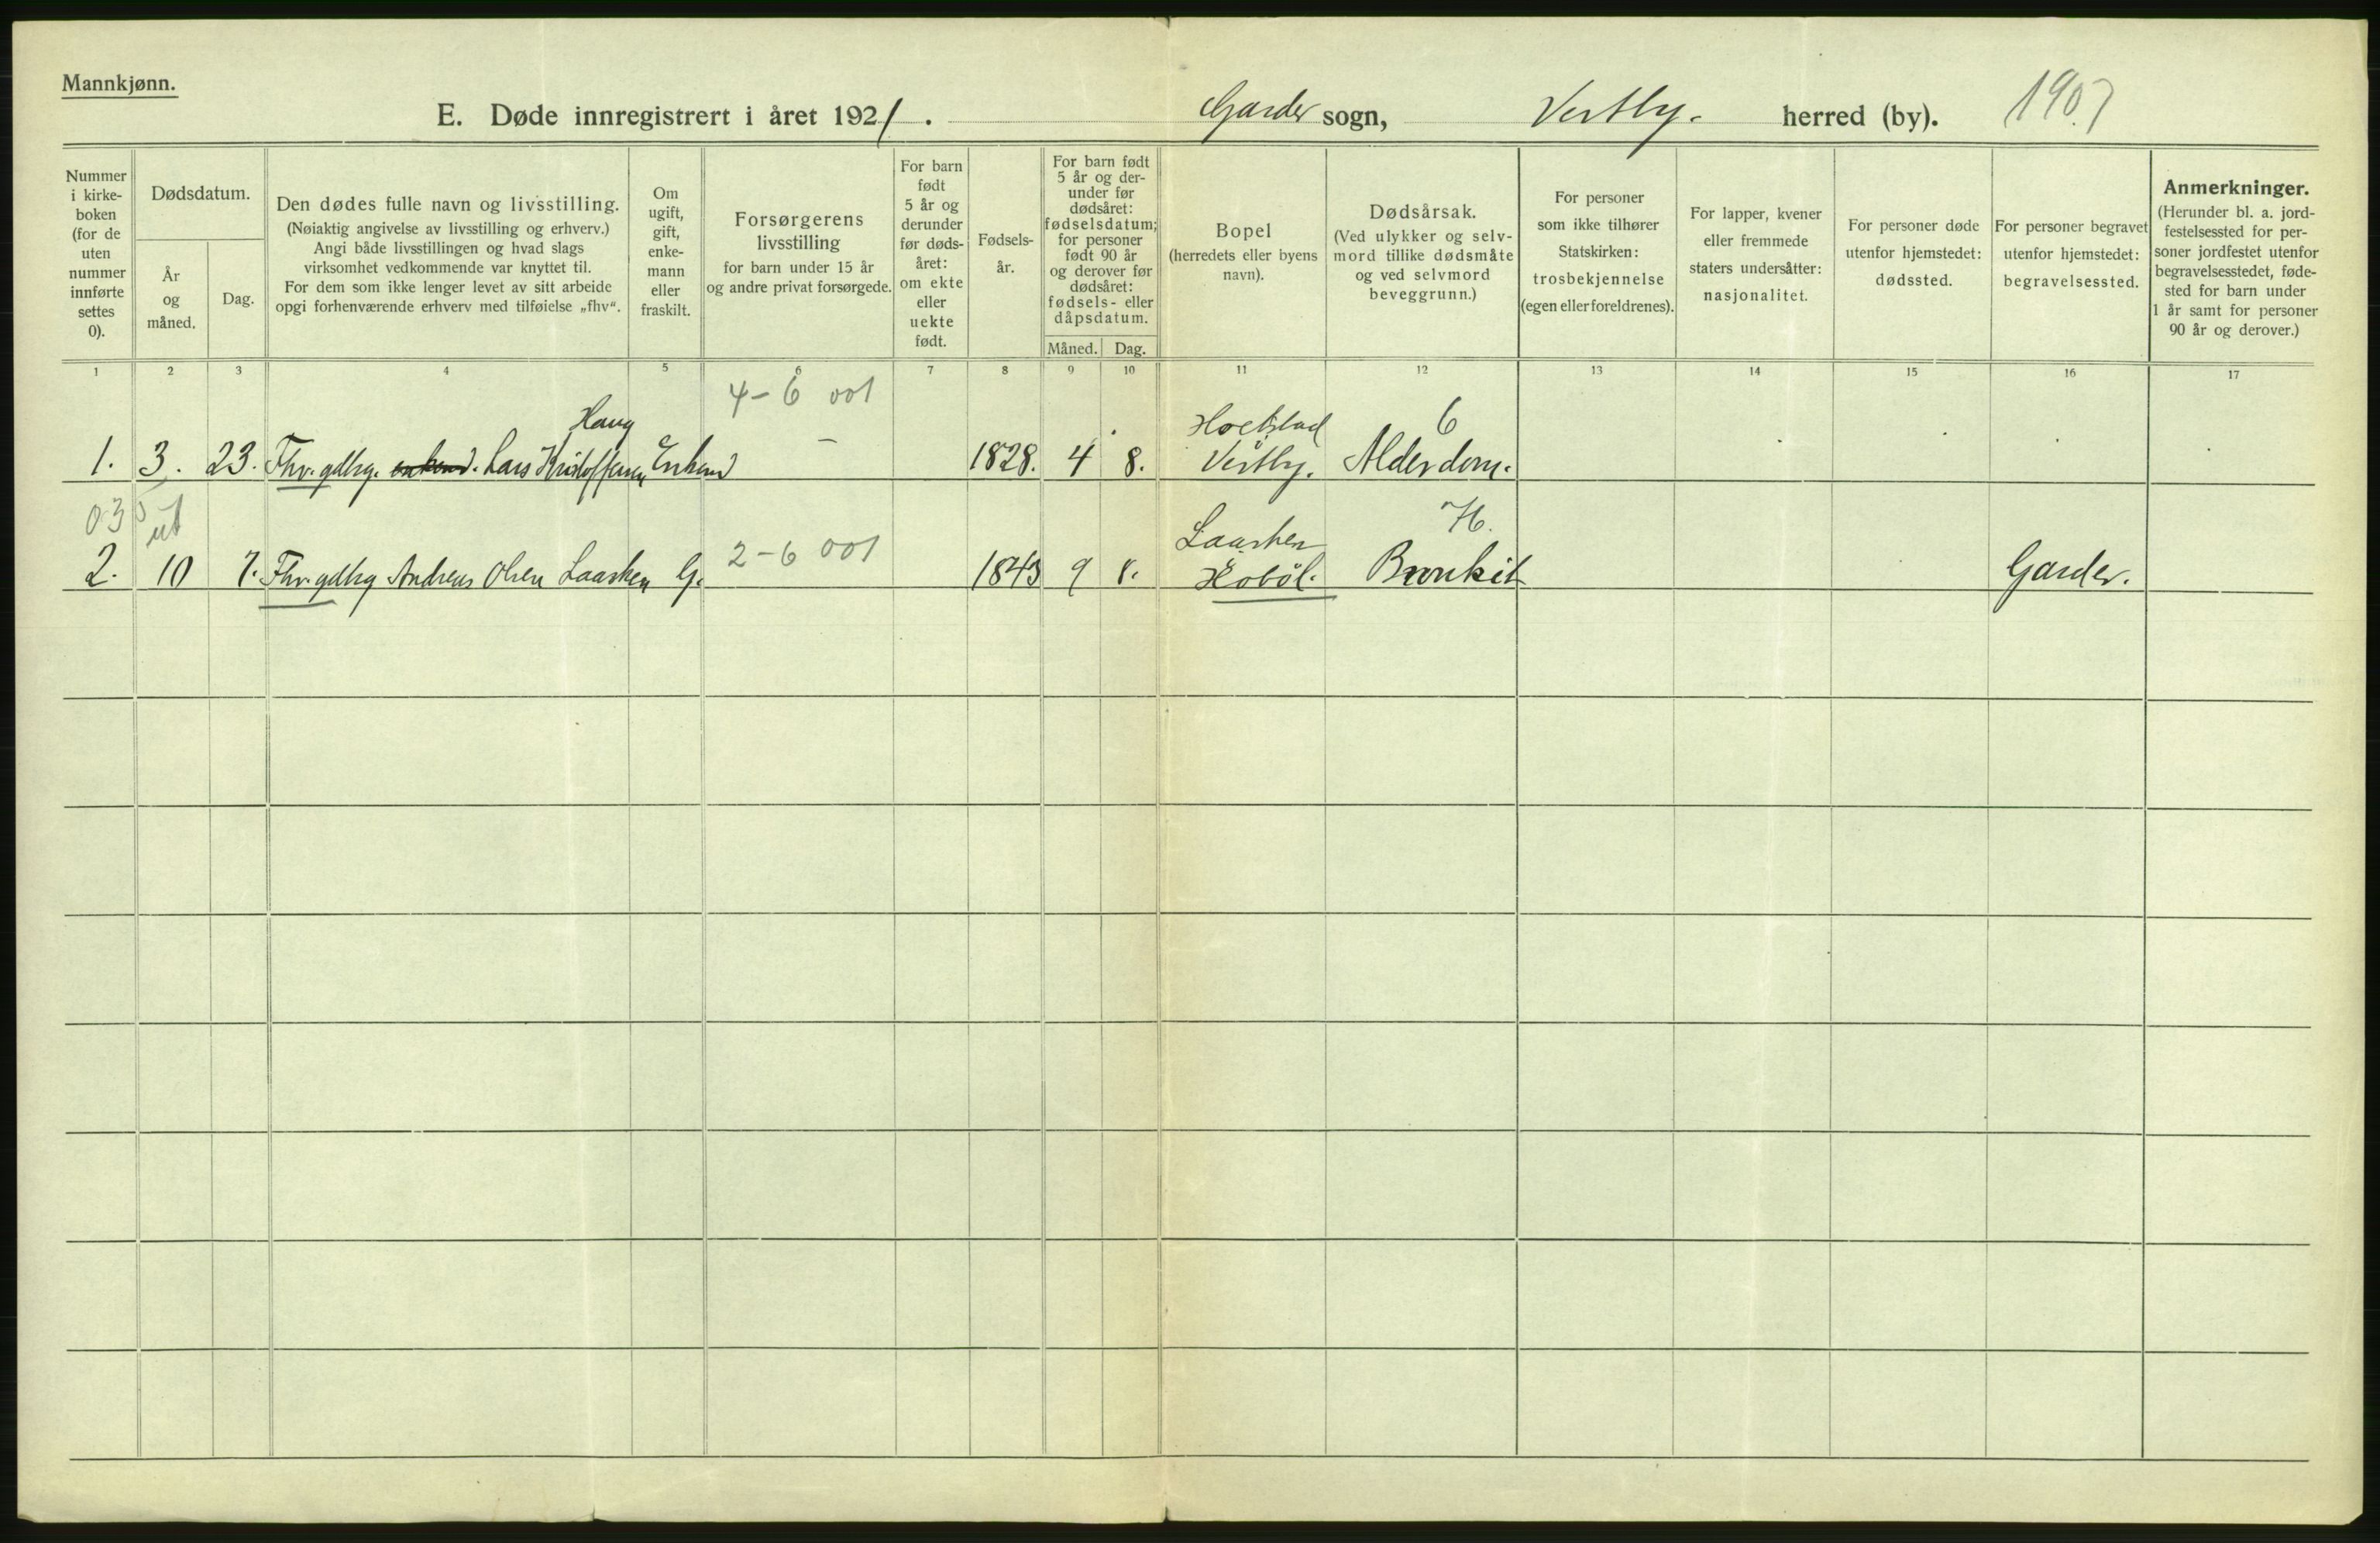 Mannkjønn.
E. Døde innregistrert i året 1921. Garder sogn, Vestby. herred (by). 1907
Nummer i kirke- boken (for de uten nummer innførte settes 0).
Dødsdatum.
År og måned.
Dag.
Den dødes fulle navn og livsstilling.
(Nøiaktig angivelse av livsstilling og erhverv.)
Angi både livsstillingen og hvad slags
virksomhet vedkommende var knyttet til.
For dem som ikke lenger levet av sitt arbeide
opgi forhenværende erhverv med tilføielse „fhv“.
Om ugift, gift, enke- mann eller fraskilt.
Forsørgerens
livsstilling
for barn under 15 år
og andre privat forsørgede.
For barn født 5 år og derunder før døds- året: om ekte eller uekte født.
Fødsels- år.
For barn født 5 år og der- under før dødsåret: fødselsdatum; for personer født 90 år og derover før dødsåret: fødsels- eller dåpsdatum.
Måned. Dag.
Bopel
(herredets eller byens
navn).
Dødsårsak.
(Ved ulykker og selv-
mord tillike dødsmåte
og ved selvmord
beveggrunn.)
For personer
som ikke tilhører
Statskirken:
trosbekjennelse
(egen eller foreldrenes).
For lapper, kvener
eller fremmede
staters undersåtter:
nasjonalitet.
For personer døde
utenfor hjemstedet:
dødssted.
For personer begravet
utenfor hjemstedet:
begravelsessted.
Anmerkninger.
(Herunder bl. a. jord-
festelsessted for per-
soner jordfestet utenfor
begravelsesstedet, føde-
sted for barn under
1 år samt for personer
90 år og derover.)
1 2 3 4 5 6 7 8 9 10 11 12 13 14 15 16 17
4-6 001
Haug Hoelstad 6
1. 3. 23. Fhv. gdbrg. enkem. Lars Kristoffersen Enkem – 1828. 4 8. Vestby. Alderdom.
03 ut 2-6 001 Laasken 76.
2. 10 7. Fhv. gdbrg Andreas Olsen Laasken G. 1843 9 8. Hobøl. Bronkit Garder.